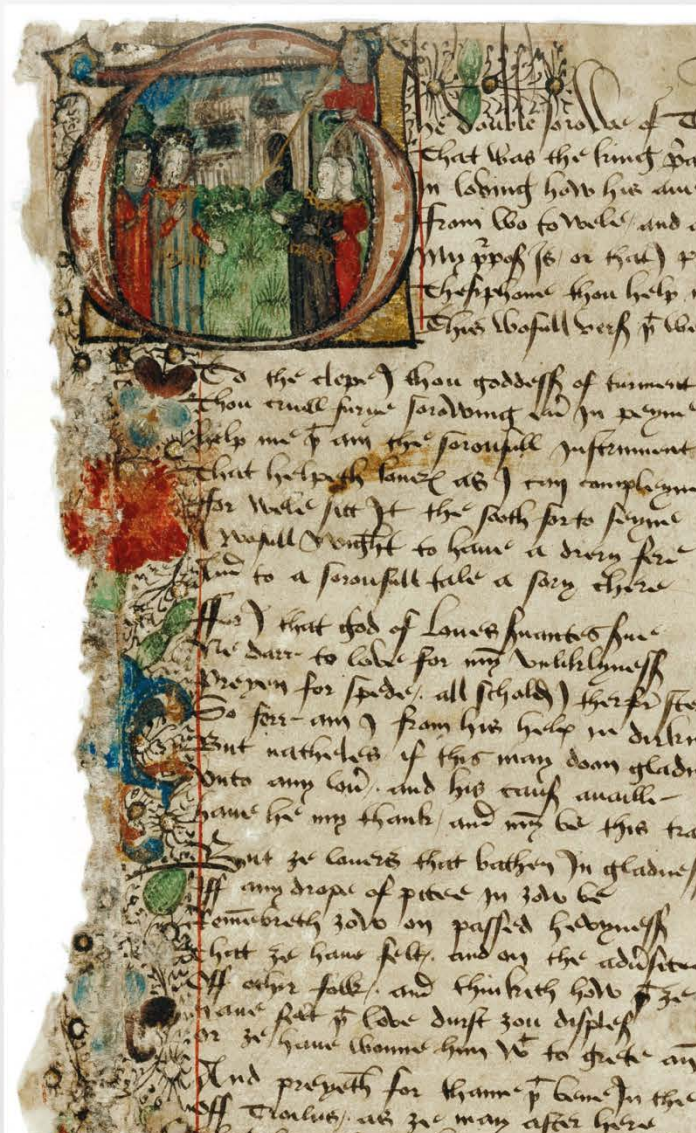 The double sorowe of T
That was the king p̃a
In loving how his au
From wo to wele / and a
My p̃pos Is / or that I p
Thesiphone thou help
This wofull vers p̃ we
To the clepe I thou goddess of turment
Thou cruell furye sorowing eũ In peyne
Help me p̃ am the sorousfull Instrument
That helpeth louer as I can compleyne
ffor wele sitt It the soth forto seyne
A wofull wight to haue a drery fere
And to a sorousfull tale a sory chere
ffor I that god of loues suantes sue
Ne darr to love for my vnliklyness
Preyen for spede / all schold I therfr̃ ste
So ferr am I from his help in dirkn
But natheles if this may doon gladn
Vnto any lou̾ / and his caus auaille
haue he my thank / and my be this tra
But ȝe louers that bathen In gladnes
Iff any drope of pitee In ȝow be
Remēbreth ȝow on passed hevyness
Thatt ȝe haue felt / and on the adũsite
Off othir folk / and thinkith how p̃ ȝe
haue felt p̃ love durst ȝou disples
Or ȝe haue wonne him wͭ to grete an
And preyeth for thame p̃ bene In the
Off Troilus / as ȝe may after here